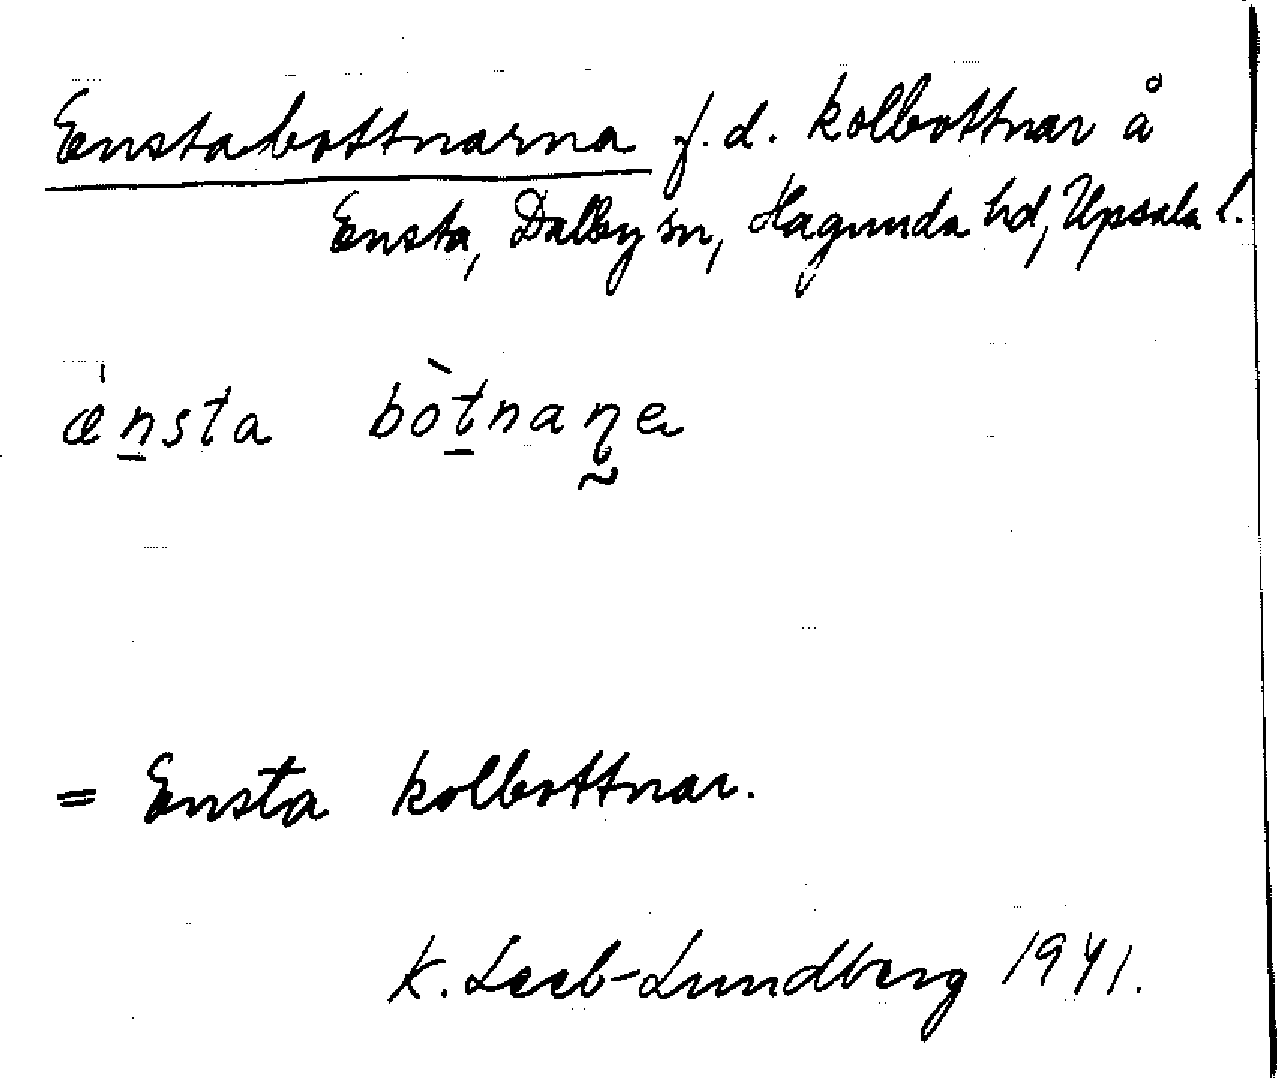 Enstabottnarna f.d. kolbottnar å
Ensta, Dalby sn, Hagunda hd, Upsala l.
ænsta bòtnaṇe
= Ensta kolbottnar.
K. Leeb-Lundberg 1941.